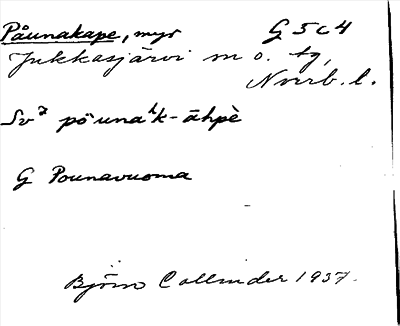 Påunakape, myr G 5 c 4
Jukkasjärvi m o. tg,
Nvrrb. l.
Sv⁷ pöunaʰk-āhpè
G Pounavuoma
Björn Collinder 1937.